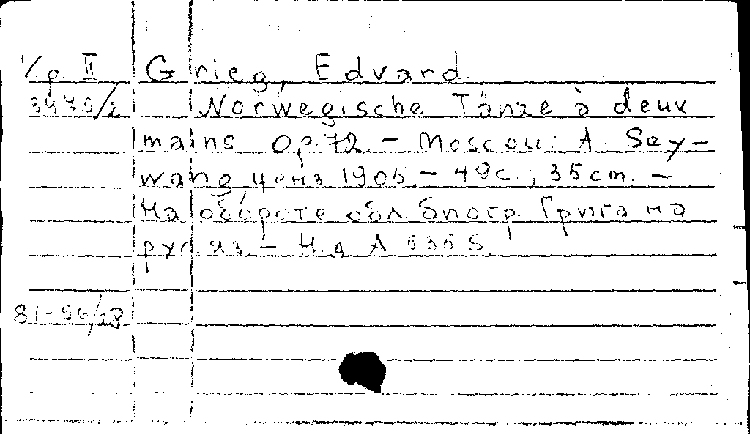 Гр II Grieg, Edvard
3476/2 Norwegische Tänze à deux
mains Op. 72 – Moscou: A. Sey-
wang, ценз 1905 – 49с., 35cm. –
На обороте обл. биогр. Грига на
рус. яз. – Н.д. A 535 S.
81-96/28